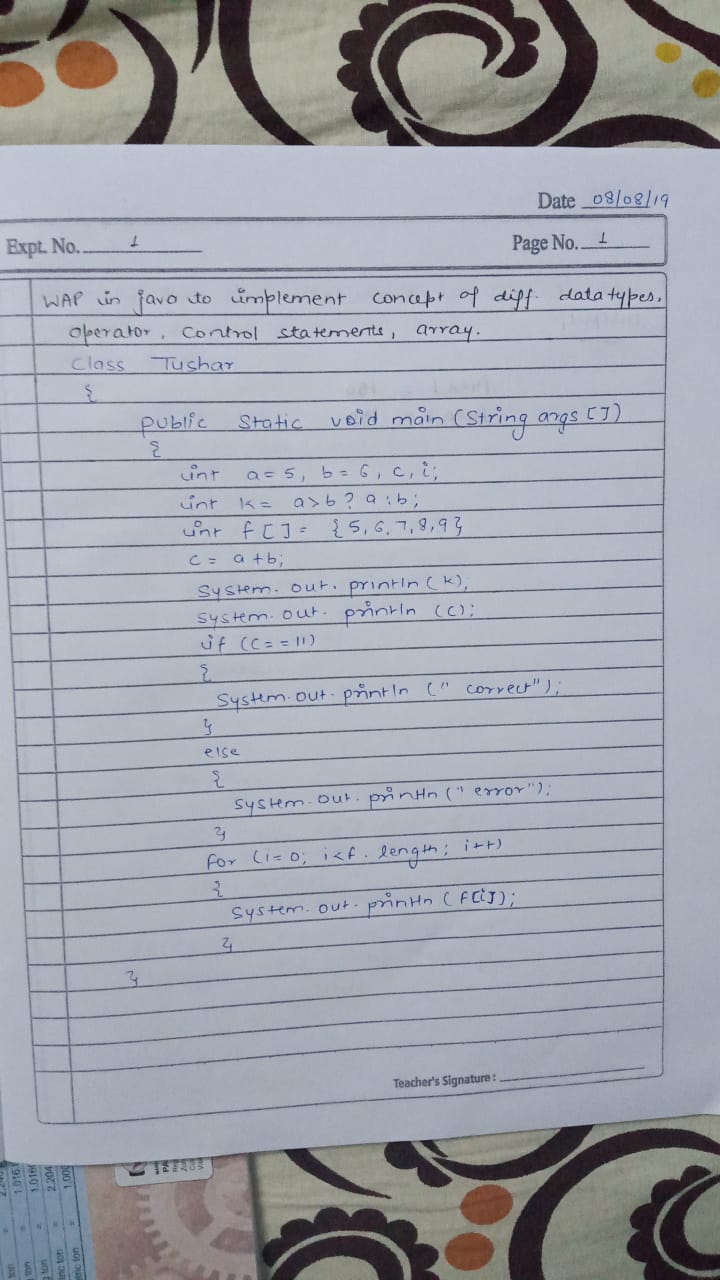 Date 08/08/19
Expt. No. 1
Page No. 1
WAP in java to implement concept of diff. data types,
operator, control statements, array.
class Tushar
{
public static void main (String args [])
{
int a=5, b=6, c, i;
int k= a>b? a:b;
int f[]= {5,6,7,8,9}
c= a+b;
System.out.println(k);
System.out.println (c);
if (c==11)
{
System.out.println (" correct");
}
else
{
System.out.println (" error");
}
for (i=0; i<f.length; i++)
{
System.out.println (f[i]);
}
}
Teacher's Signature :
1.016
1.016
2,204
1,000
ton
ton